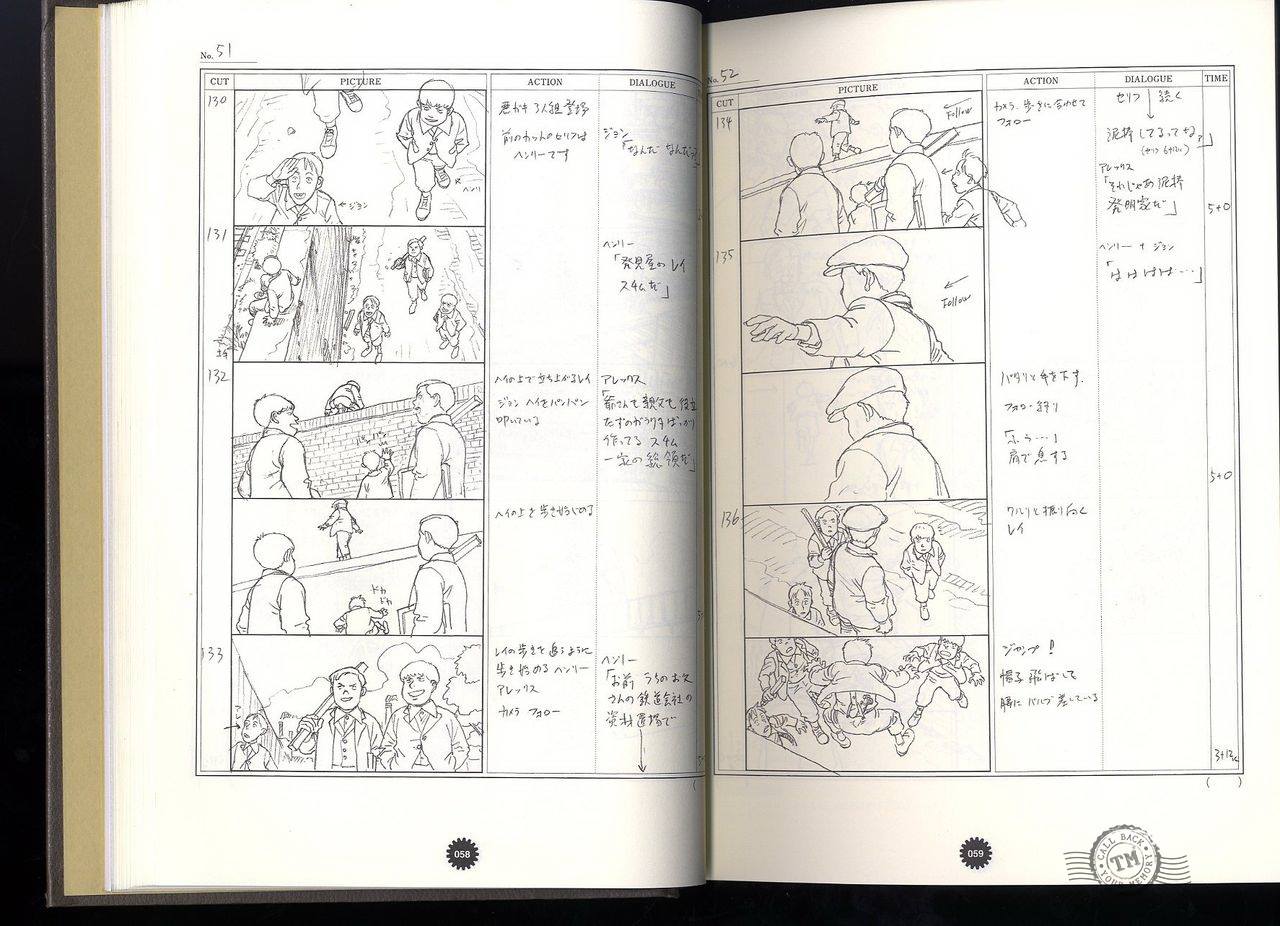 No. 51
CUT
PICTURE
ACTION
DIALOGUE
130
悪ガキ3人組登場
前のカットのセリフは
ヘンリーです
ジョン
「なんだ なんだ
←ジョン
ヘンリー
131
ヘンリー
「発見屋のレイ
スチムだ」
132
ヘイの上で立ち上がるレイ
ジョン ヘイをバンバン
叩いている
アレックス
「爺さんも親父も役立
たずのガラクタばっかり
作ってる スチム
一家の総領だ」
バンバン
ヘイの上を歩き始める
ドカ
ドカ
133
レイの歩きを追うように
歩き始めるヘンリー
アレックス
カメラ フォロー
ヘンリー
「お前 うちのお父
さんの鉄道会社の
資材置場で
058
No. 52
CUT
PICTURE
ACTION
DIALOGUE
TIME
134
Follow
カメラ、歩きに合わせて
フォロー
セリフ 続く
泥棒してるってな。」
アレックス
「それじゃあ泥棒
発明家だ」
5+0
135
Follow
ヘンリー + ジョン
「はははは…」
パタリと手を下す。
フォロー終り
「ふぅ…」
肩で息する
5+0
136
クルリと振り向く
レイ
ジャンプ!
帽子飛ばして
腰にバルブ差している
3+12
( )
059
CALL BACK
TM
YOUR MEMORY